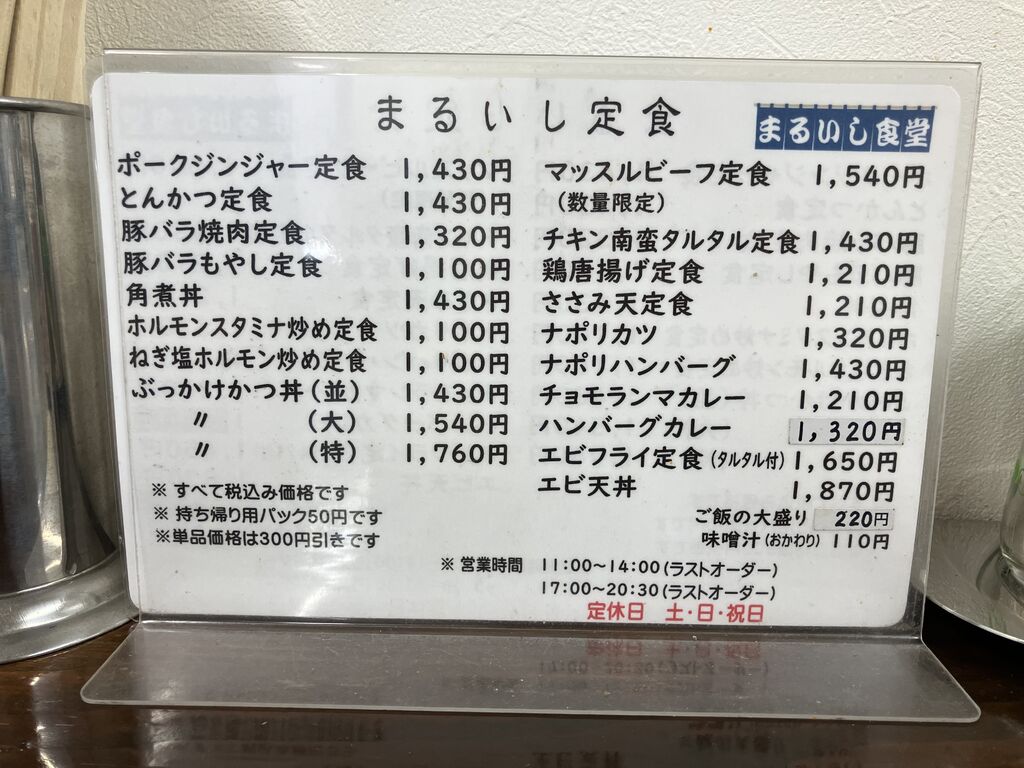 まるいし定食
まるいし食堂
ポークジンジャー定食 1,430円
とんかつ定食 1,430円
豚バラ焼肉定食 1,320円
豚バラもやし定食 1,100円
角煮丼 1,430円
ホルモンスタミナ炒め定食 1,100円
ねぎ塩ホルモン炒め定食 1,100円
ぶっかけかつ丼(並) 1,430円
〃 (大) 1,540円
〃 (特) 1,760円
※ すべて税込み価格です
※ 持ち帰り用パック50円です
※単品価格は300円引きです
マッスルビーフ定食 1,540円
(数量限定)
チキン南蛮タルタル定食 1,430円
鶏唐揚げ定食 1,210円
ささみ天定食 1,210円
ナポリカツ 1,320円
ナポリハンバーグ 1,430円
チョモランマカレー 1,210円
ハンバーグカレー 1,320円
エビフライ定食(タルタル付) 1,650円
エビ天丼 1,870円
ご飯の大盛り 220円
味噌汁(おかわり) 110円
※ 営業時間 11:00〜14:00(ラストオーダー)
17:00〜20:30(ラストオーダー)
定休日 土・日・祝日